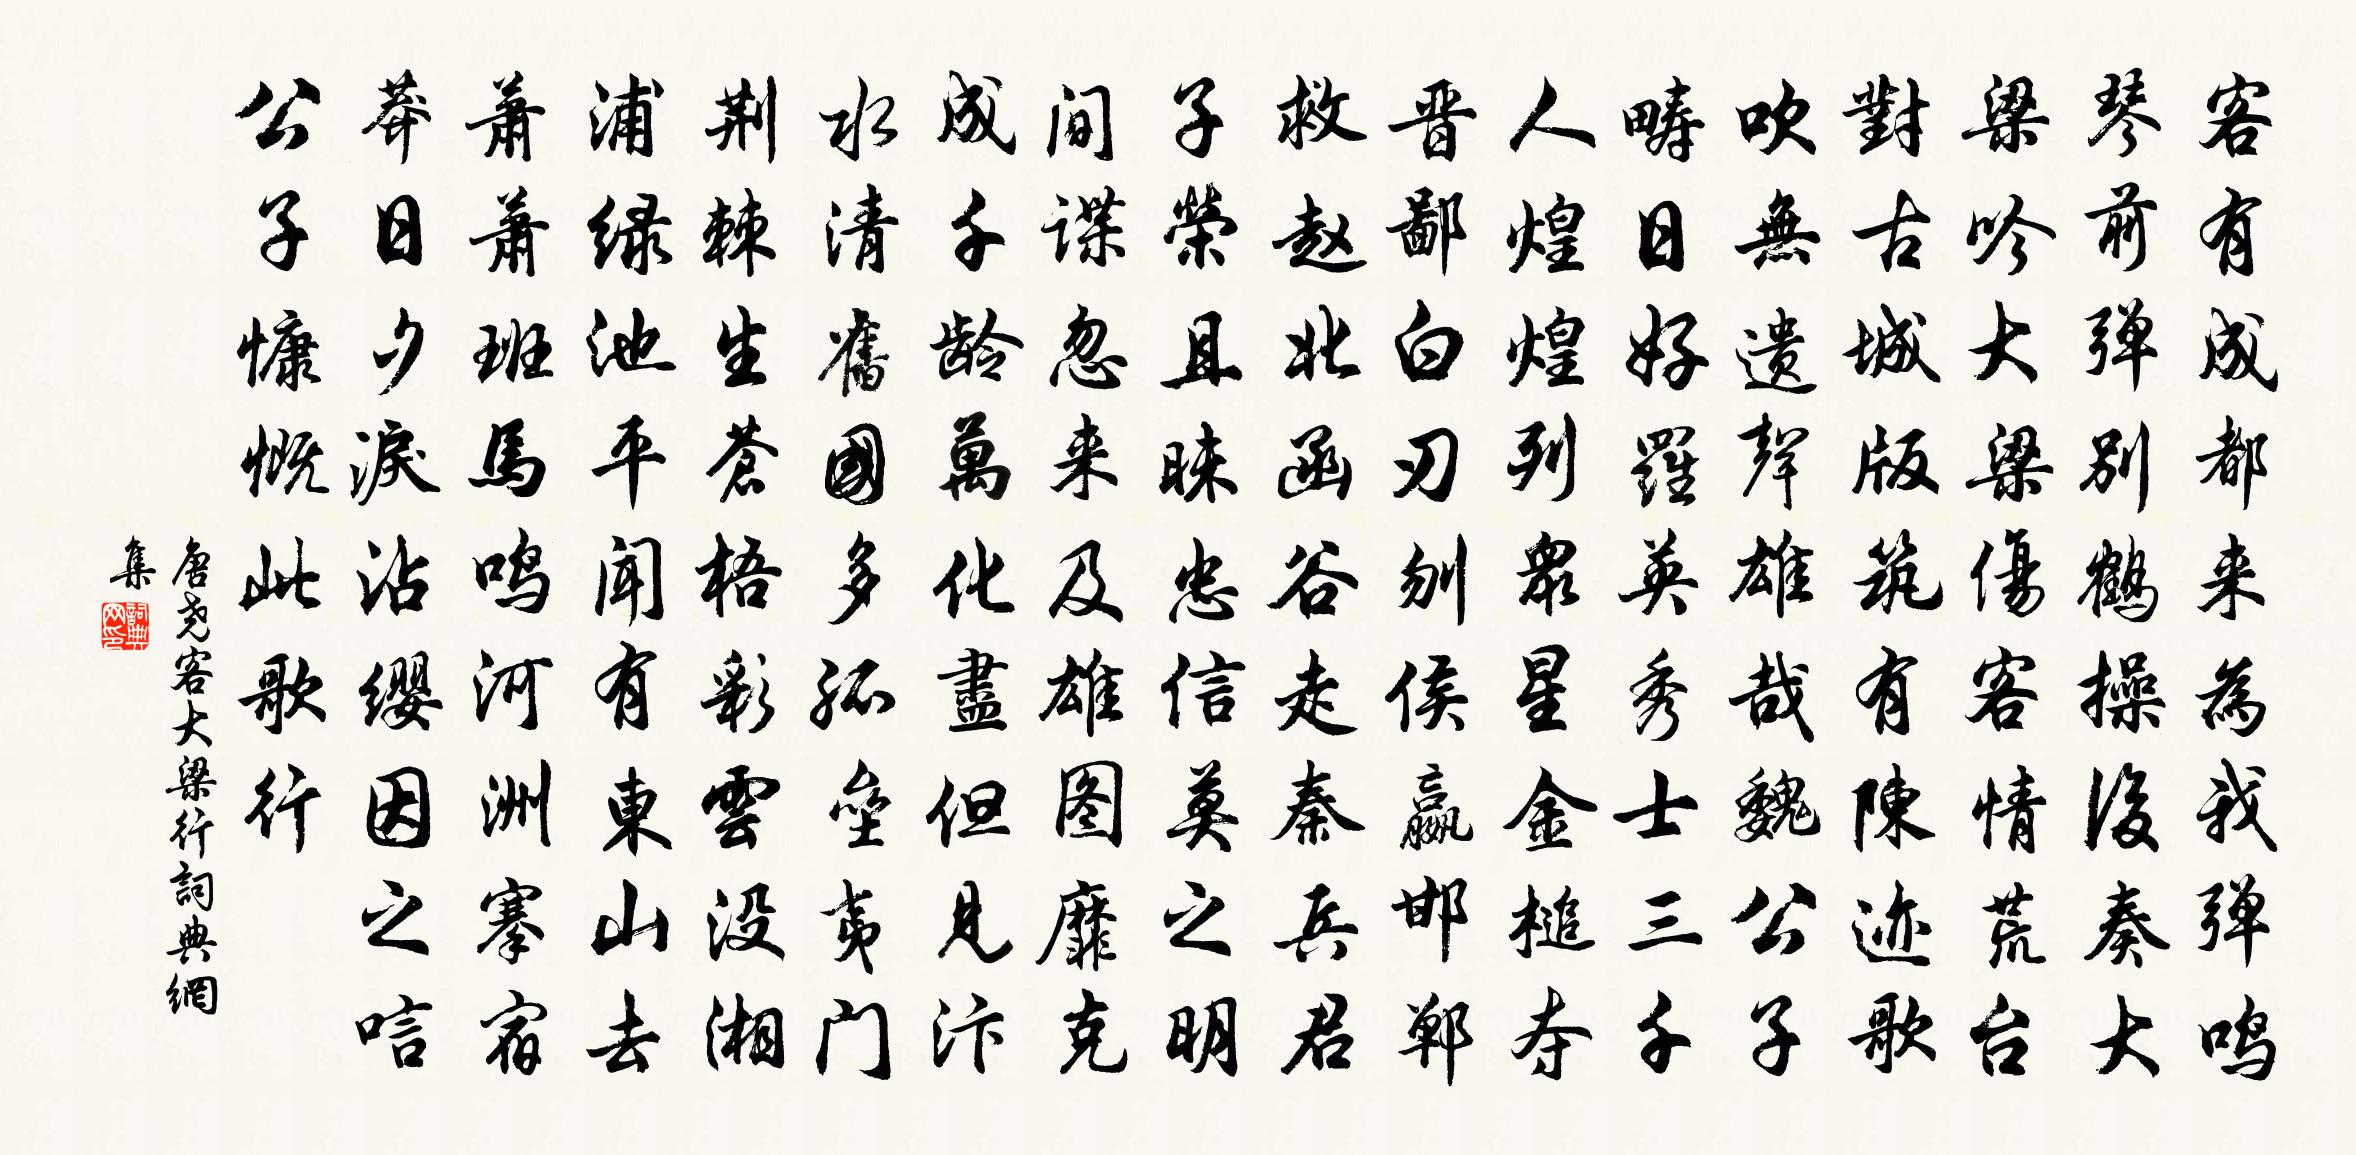 客有成都来為我弹鸣
琴前弹别鹤操後奏大
梁吟大梁傷客情荒台
對古城版筑有陳迹歌
吹無遗聲雄哉魏公子
疇日好羅英秀士三千
人煌煌列眾星金槌夺
晋鄙白刃刎侯嬴邯郸
救赵北函谷走秦兵君
子榮且昧忠信莫之明
间谍忽来及雄图靡克
成千龄萬化盡但见汴
水清舊國多孤垒夷门
荆棘生蒼梧彩雲没湘
浦绿池平闻有東山去
萧萧班馬鸣河洲搴宿
莽日夕淚沾缨因之唁
公子慷慨此歌行
唐尧客大梁行詞典網
集
詞典
网印